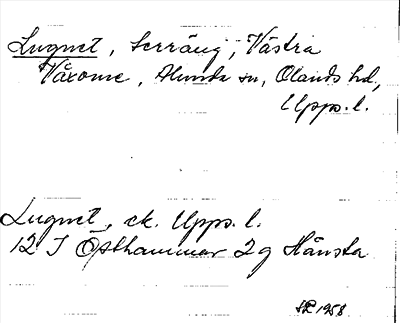 Lugnet, Serräng, Västra
Våxome, Alunda sn, Olands hd,
Upps. l.
Lugnet, ek. Upps. l.
12 I Östhammar 2 g Hånsta
1958